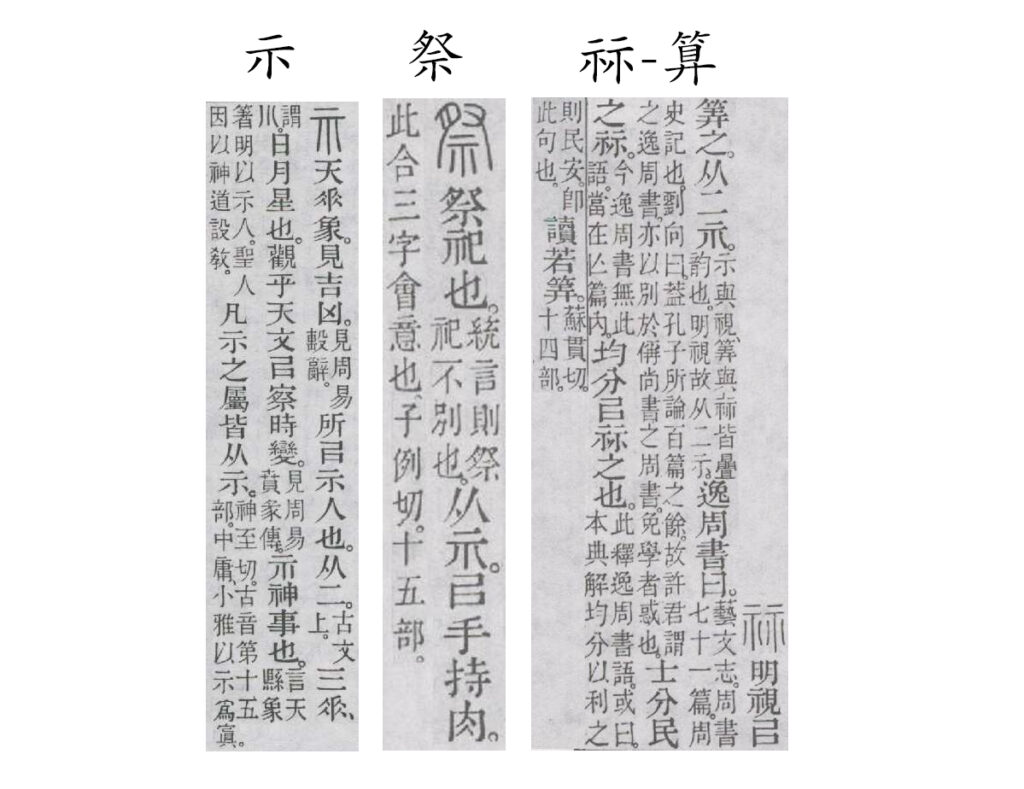 示
祭
祘-算
示天𠂹象。見吉凶。見周易毄辭。所㠯示人也。从二。古文上。三𠂹、
謂川。日月星也。觀乎天文㠯察時變。見周易賁彖傳。示神事也。言天縣象
箸明以示人。聖人因以神道設敎。凡示之屬皆从示。神至切。古音第十五部。中庸、小雅以示爲寘。
祭祭祀也。統言則祭祀不別也。从示。㠯手持肉。
此合三字會意也。子例切。十五部。
祘明視㠯
筭之。从二示。示與視、筭與祘皆曡韵也。明視故从二示。逸周書曰。藝文志。周書七十一篇。周
史記也。劉向曰。蓋孔子所論百篇之餘。故許君謂之逸周書、亦以別於偁尚書之周書。免學者惑也。士分民
之祘。今逸周書無此語。當在亾篇內。均分㠯祘之也。此釋逸周書語。或曰。本典解均分以利之
則民安。卽此句也。讀若筭。蘇貫切。十四部。